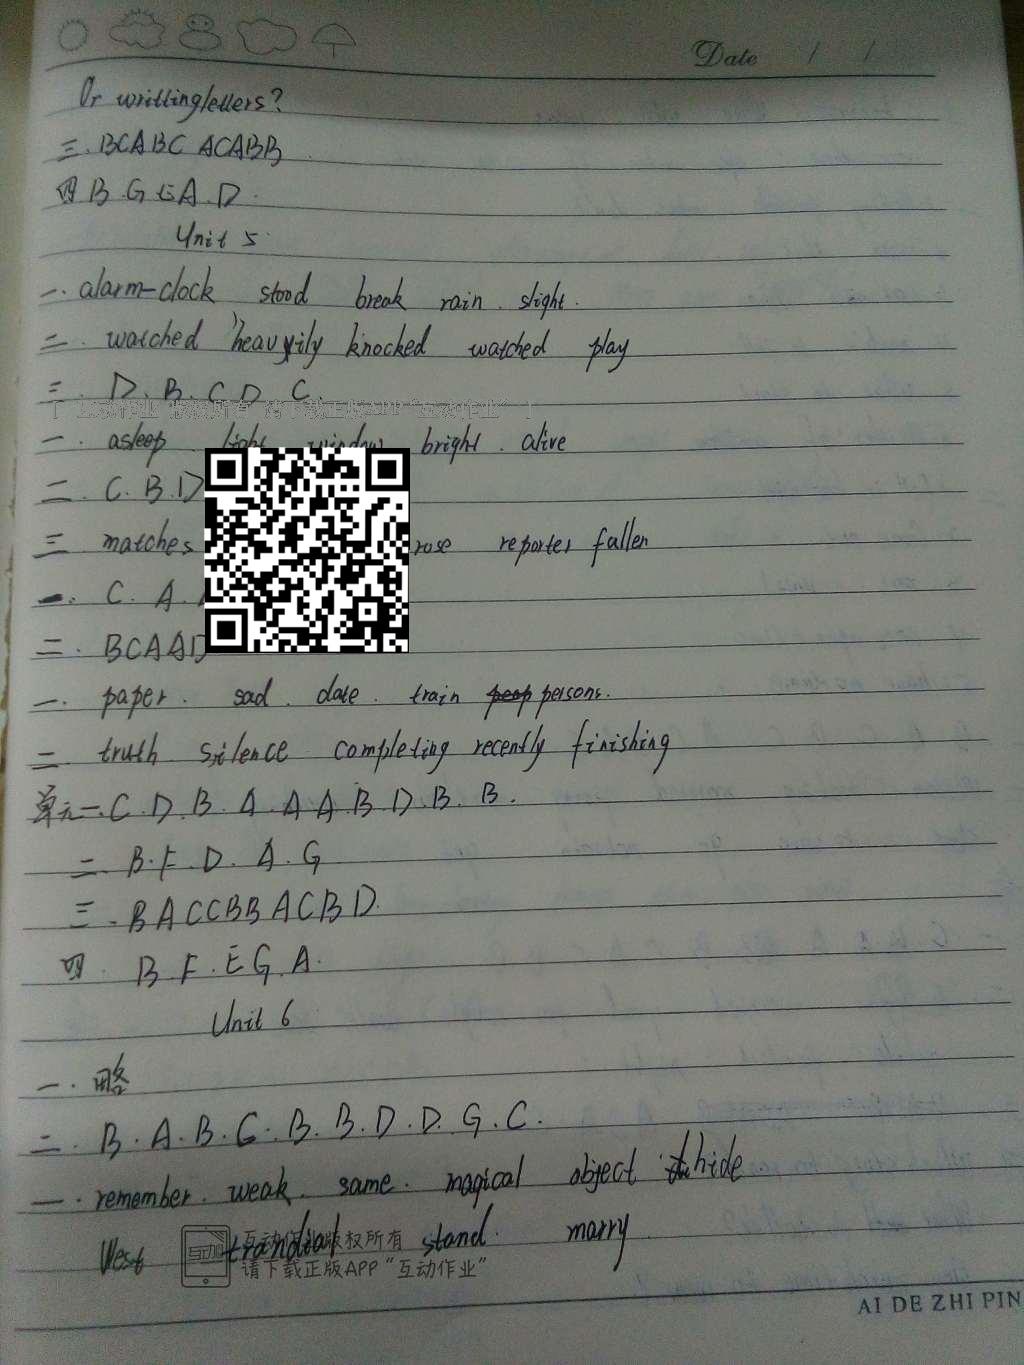 Date / /
Or writtingletters?
三. BCABC ACABB
四 B.G E A.D.
Unit 5
一. alarm-clock stood break rain. slight.
二. watched heavyily knocked watched play
三. D. B. C D C.
[ 互动作业 版权所有 请下载正版APP“互动作业” ]
一. asleep light window bright. alive
二. C. B. D
三 matches rose reporter fallen
一. C. A.
二. BCAAD
一. paper. sad. date. train persons.
二 truth silence completing recently finishing
单元一. C. D. B. A. A A. B. D. B. B.
二. B. F. D. A. G
三. BACCBBACBD.
四. B. F. E G. A.
Unit 6
一. 略
二. B. A. B. C. B. B. D. D. G. C.
一. remember. weak. same. magical object hide
West stand. marry
互动作业版权所有
请下载正版APP“互动作业”
AI DE ZHI PIN